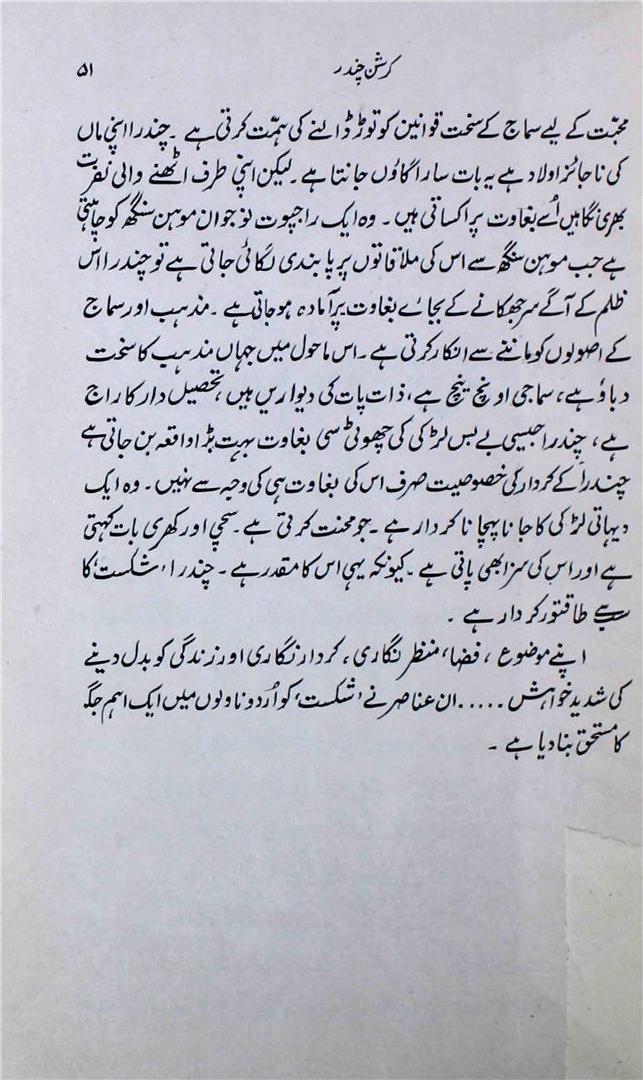 کرشن چندر ۵۱
محبّت کے لیے سماج کے سخت قوانین کو توڑ ڈالنے کی ہمّت کرتی ہے ۔ چندرا اپنی ماں
کی ناجائز اولاد ہے یہ بات سارا گاؤں جانتا ہے ۔ لیکن اپنی طرف اٹھنے والی نفرت
بھری نگاہیں اُسے بغاوت پر اکساتی ہیں ۔ وہ ایک راجپوت نوجوان موہن سنگھ کو چاہتی
ہے جب موہن سنگھ سے اس کی ملاقاتوں پر پابندی لگائی جاتی ہے تو چندرا اس
ظلم کے آگے سر جھکانے کے بجائے بغاوت پر آمادہ ہو جاتی ہے ۔ مذہب اور سماج
کے اصولوں کو ماننے سے انکار کرتی ہے ۔ اس ماحول میں جہاں مذہب کا سخت
دباؤ ہے، سماجی اونچ نیچ ہے، ذات پات کی دیواریں ہیں، تحصیل دار کا راج
ہے، چندرا جیسی بے بس لڑکی کی چھوٹی سی بغاوت بہت بڑا واقعہ بن جاتی ہے
چندرا کے کردار کی خصوصیت صرف اس کی بغاوت ہی کی وجہ سے نہیں ۔ وہ ایک
دیہاتی لڑکی کا جانا پہچانا کردار ہے ۔ جو محنت کرتی ہے ۔ سچی اور کھری بات کہتی
ہے اور اس کی سزا بھی پاتی ہے ۔ کیونکہ یہی اس کا مقدر ہے ۔ چندرا، ’شکست‘ کا
سب سے طاقتور کردار ہے ۔
اپنے موضوع، فضا، منظر نگاری، کردار نگاری اور زندگی کو بدل دینے
کی شدید خواہش ..... ان عناصر نے ’شکست‘ کو اُردو ناولوں میں ایک اہم جگہ
کا مستحق بنا دیا ہے ۔